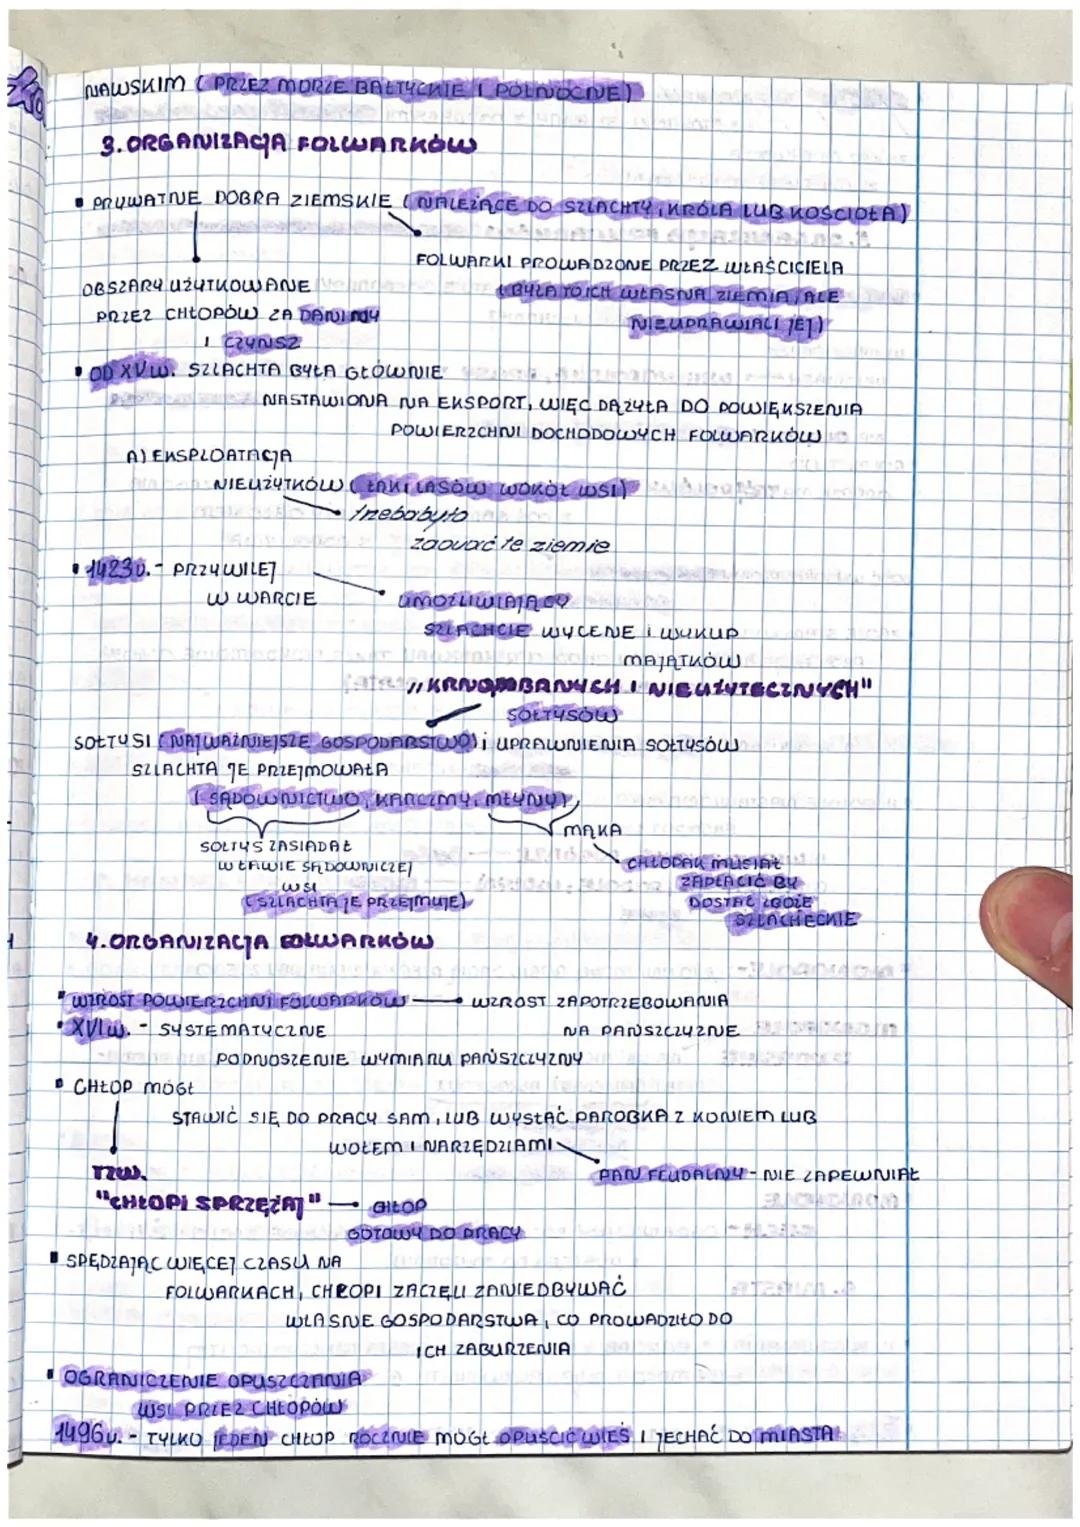 NAWSKIM (PRZEZ MORZE BAŁTYCKIE I PÓŁNOCNE)
3. ORGANIZACJA FOLWARKÓW
▪ PRYWATNE DOBRA ZIEMSKIE (NALEŻĄCE DO SZLACHTY, KRÓLA LUB KOŚCIOŁA)
FOLWARKI PROWADZONE PRZEZ WŁAŚCICIELA
OBSZARY UŻYTKOWANE (BYŁA TO ICH WŁASNA ZIEMIA, ALE
PRZEZ CHŁOPÓW ZA DANINY NIE UPRAWIALI JEJ)
I CZYNSZ
▪ OD XV w. SZLACHTA BYŁA GŁÓWNIE
NASTAWIONA NA EKSPORT, WIĘC DĄŻYŁA DO POWIĘKSZENIA
POWIERZCHNI DOCHODOWYCH FOLWARKÓW
A) EKSPLOATACJA
NIEUŻYTKÓW (ŁĄK I LASÓW WOKÓŁ WSI)
trzeba było
zaorać te ziemie
▪ 1423r. - PRZYWILEJ
W WARCIE UMOŻLIWIAJĄCY
SZLACHCIE WYCENE I WYKUP
MAJĄTKÓW
„KRNĄBRNYCH I NIEUŻYTECZNYCH"
SOŁTYSÓW
SOŁTYSI (NAJWAŻNIEJSZE GOSPODARSTWO) i UPRAWNIENIA SOŁTYSÓW
SZLACHTA JE PRZEJMOWAŁA
(SĄDOWNICTWO, KARCZMY, MŁYNY)
MĄKA
SOŁTYS ZASIADAŁ
W ŁAWIE SĄDOWNICZEJ CHŁOPAK MUSIAŁ
WSI ZAPŁACIĆ BY
(SZLACHTA JE PRZEJMUJE) DOSTAĆ ZBOŻE
SZLACHECKIE
4. ORGANIZACJA FOLWARKÓW
▪ WZROST POWIERZCHNI FOLWARKÓW → WZROST ZAPOTRZEBOWANIA
▪ XVI w. - SYSTEMATYCZNE NA PAŃSZCZYZNE
PODNOSZENIE WYMIARU PAŃSZCZYZNY
▪ CHŁOP MÓGŁ
STAWIĆ SIĘ DO PRACY SAM, LUB WYSŁAĆ PAROBKA Z KONIEM LUB
WOŁEM I NARZĘDZIAMI
TZW. PAN FEUDALNY - NIE ZAPEWNIAŁ
"CHŁOPI SPRZĘŻAJ" → CHŁOP
GOTOWY DO PRACY
▪ SPĘDZAJĄC WIĘCEJ CZASU NA
FOLWARKACH, CHŁOPI ZACZĘLI ZANIEDBYWAĆ
WŁASNE GOSPODARSTWA, CO PROWADZIŁO DO
ICH ZABURZENIA
▪ OGRANICZENIE OPUSZCZANIA
WSI PRZEZ CHŁOPÓW
1496r. - TYLKO JEDEN CHŁOP ROCZNIE MÓGŁ OPUŚCIĆ WIEŚ I JECHAĆ DO MIASTA